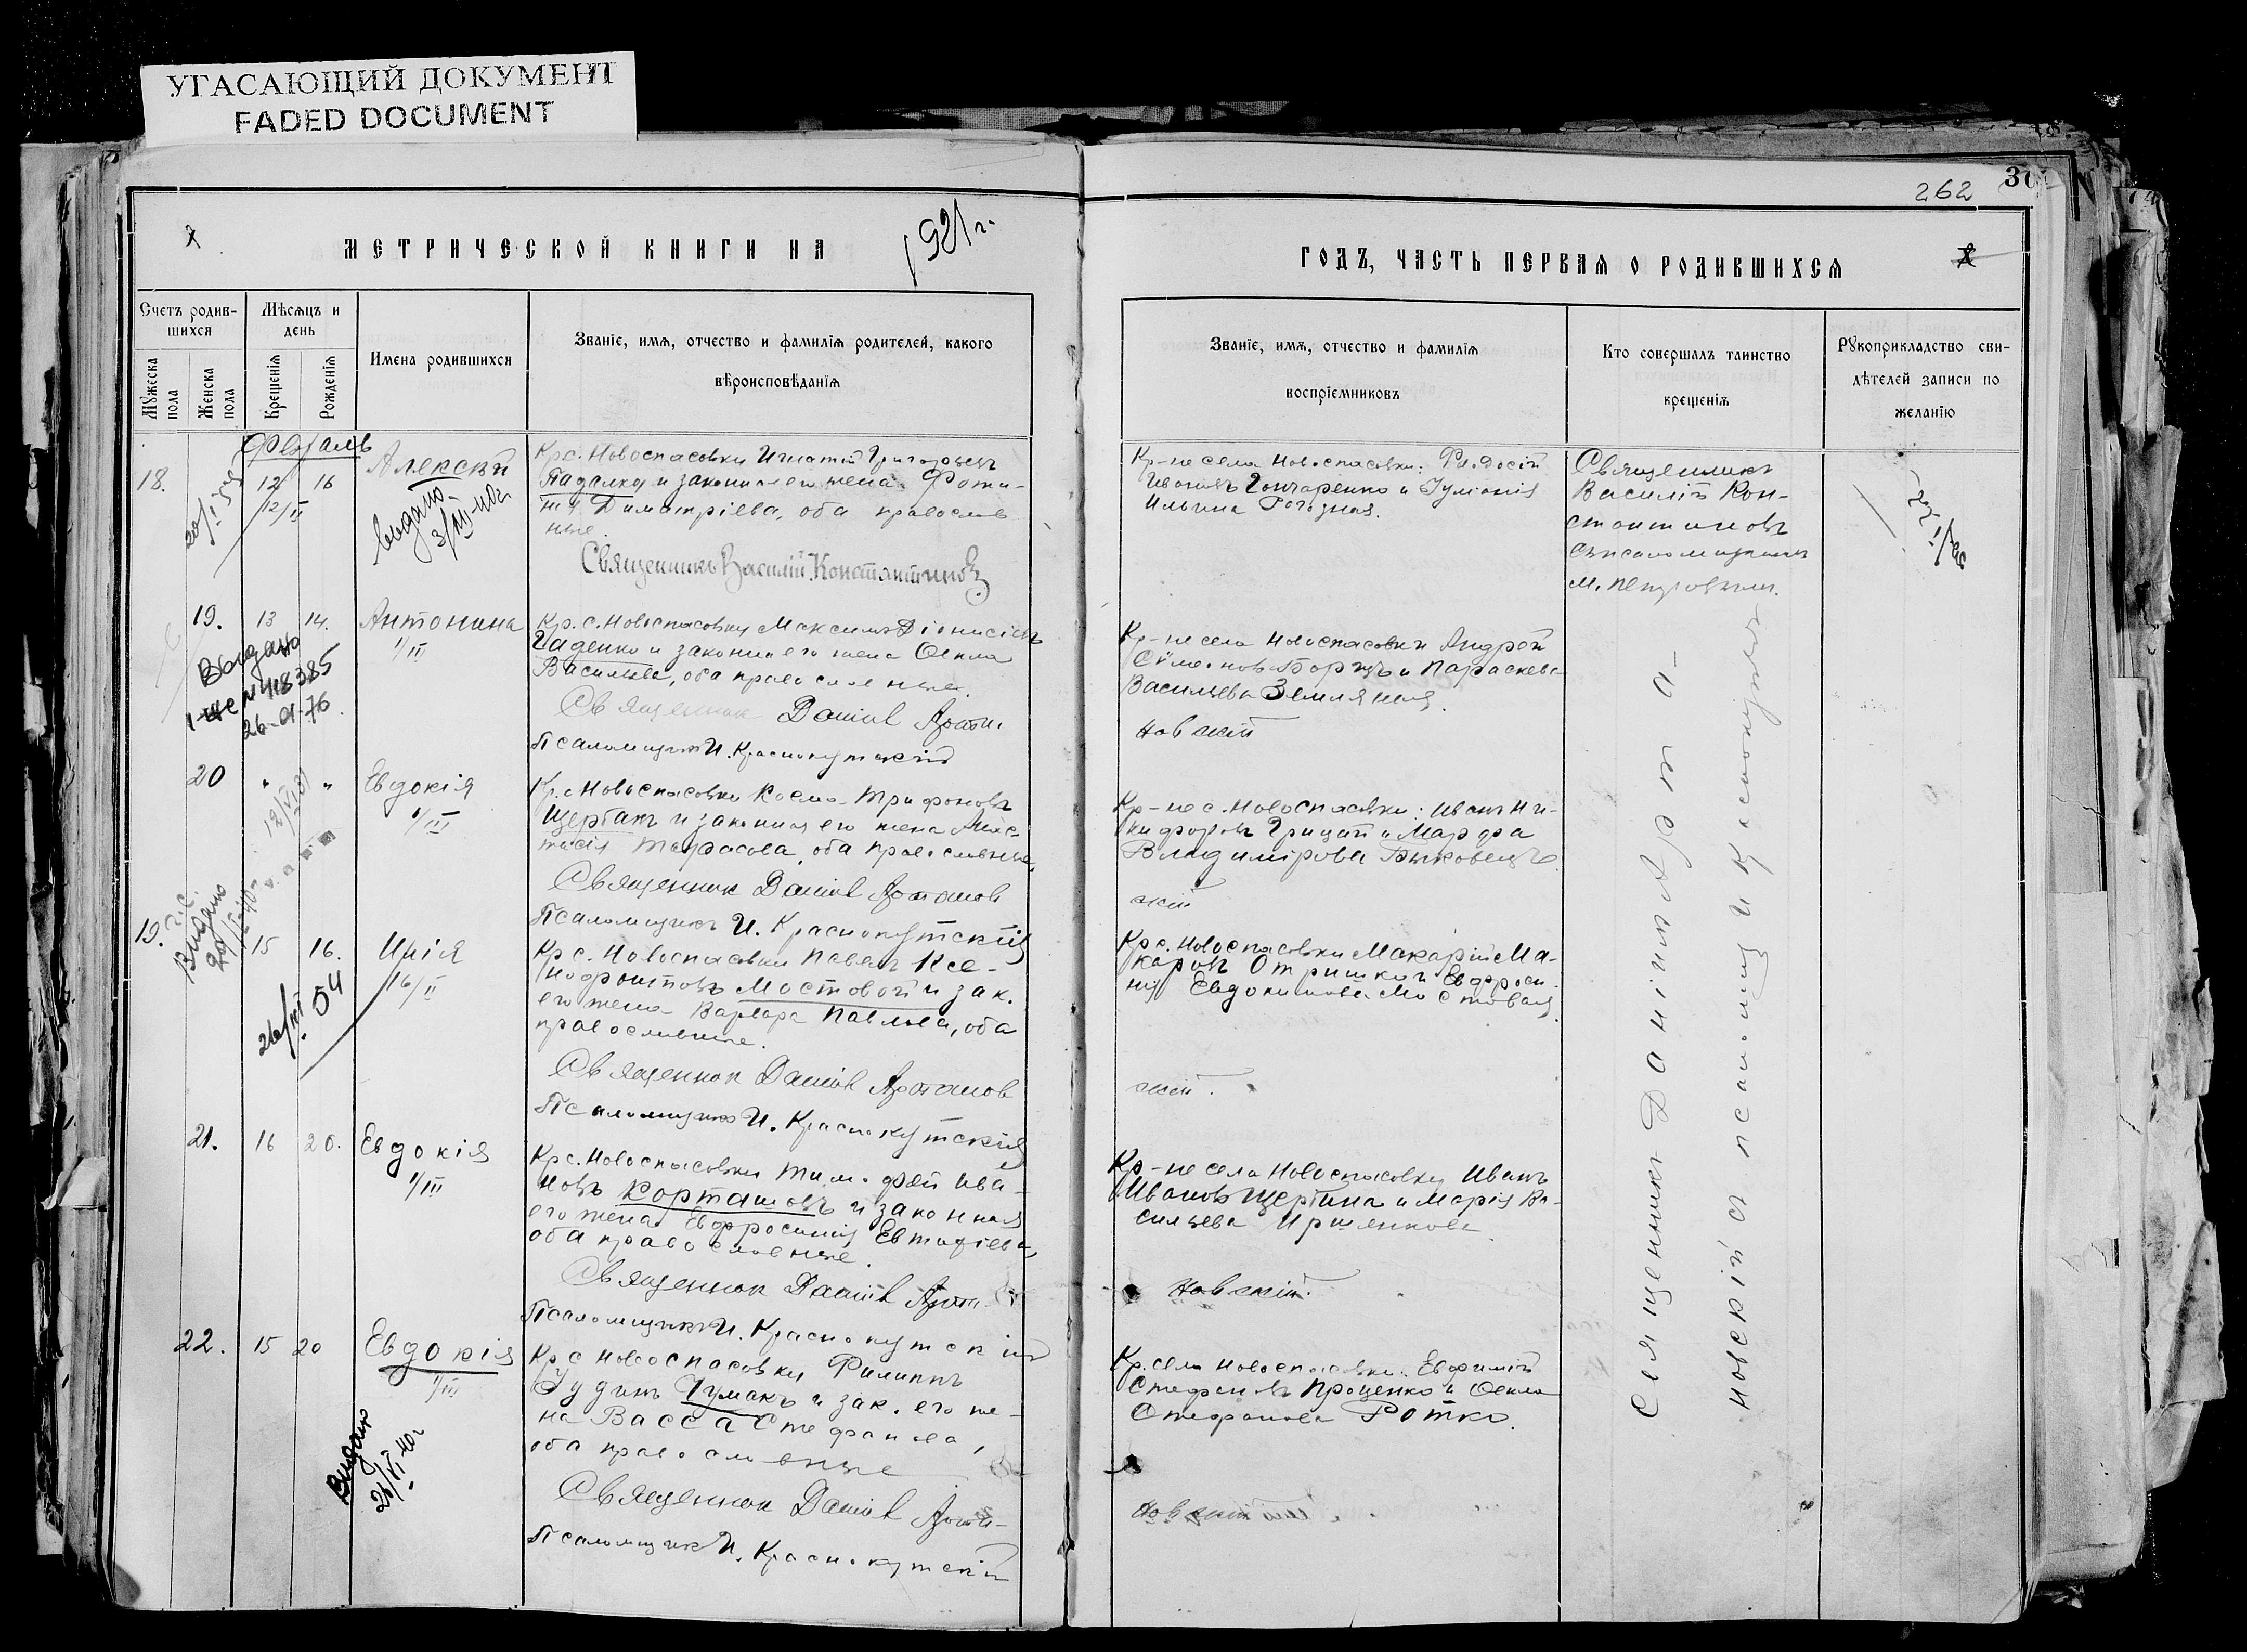 УГАСАЮЩИЙ ДОКУМЕНТ
FADED DOCUMENT
262
МЕТРИЧЕСКОЙ КНИГИ НА
1921 г.
ГОДЪ, ЧАСТЬ ПЕРВАЯ О РОДИВШИХСЯ
Счетъ родив-
шихся
Мужеска пола
Женска пола
Мѣсяцъ и
день
Крещенія
Рожденія
Имена родившихся
Званіе, имя, отчество и фамилія родителей, какого
вѣроисповѣданія
Званіе, имя, отчество и фамилія
воспріемниковъ
Кто совершалъ таинство
крещенія
Рукоприкладство сви-
дѣтелей записи по
желанію
Февраль
18.
12 16
12/II
Алексѣй
выдано
3/III-40г.
Кр. с. Новоспасовки Игнатій Григорьевъ
Падалка и законная его жена Фоти-
нія Димитріева, оба православ
ные.
Священникъ Василій Константиновъ
Кр-не села Новоспасовки:
Ивановъ Гончаренко и Іуліанія
Ильина
Священникъ
Василій Кон-
стантиновъ
съ псаломщикомъ
М. Петровымъ.
19. 13 14.
Антонина
1/III
Выдано
418385
26-01-76
Кр. с. Новоспасовки Максимъ Діонисіевъ
Гаденко и законная его жена Ѳекла
Васильева, оба православные.
Священник Даніил Артa-
Псаломщикъ И. Краснокутскій
Кр-не села Новоспасовки Андрей
Сѵмеоновъ Борецъ и Параскева
Васильева Земляная.
новский
20 " "
Евдокія
1/III
Кр. с. Новоспасовки Косма Трифоновъ
Щербакъ и законная его жена Анас-
тасія Тарасова, оба православные.
Священник Даніил Артанов
Псаломщикъ И. Краснокутскій
Кр-не с. Новоспасовки: Иванъ Ни-
кифоровъ Грицай и Марфа
Владимірова
ский
19.
Выдано
15 16.
Инія
16/II
26/III 54
Кр. с. Новоспасовки Павелъ Ксе-
нофонтовъ Мостовой и зак.
его жена Варвара Павлова, оба
православные.
Священник Даніил Артанов
Псаломщикъ И. Краснокутскій
Кр. с. Новоспасовки Макарій Ма-
каровъ Отришко и Евфроси-
нія Евдокимова Мостовая.
ский.
21. 16 20.
Евдокія
1/III
Кр. с. Новоспасовки Тимофей Ива-
новъ Корташовъ и законная
его жена Евфросинія Евтихіева,
оба православные.
Священник Даніил Арта-
Псаломщикъ И. Краснокутскій
Кр-не села Новоспасовки Иванъ
Ивановъ Щербина и Марія Ва-
сильева
новский.
22. 15 20
Евдокія
1/III
Выдано
26/VI-40г
Кр. с. Новоспасовки Филиппъ
Іудинъ Чумакъ и зак. его же-
на Васса Стефанова,
оба православные
Священник Даніил Арта-
Псаломщикъ И. Краснокутскій
Кр. села Новоспасовки: Евфимій
Стефановъ Проценко и Ѳекла
Стефанова Ротко.
новский
Священникъ Даніилъ Арта-
новскій и псаломщикъ Краснокутскій